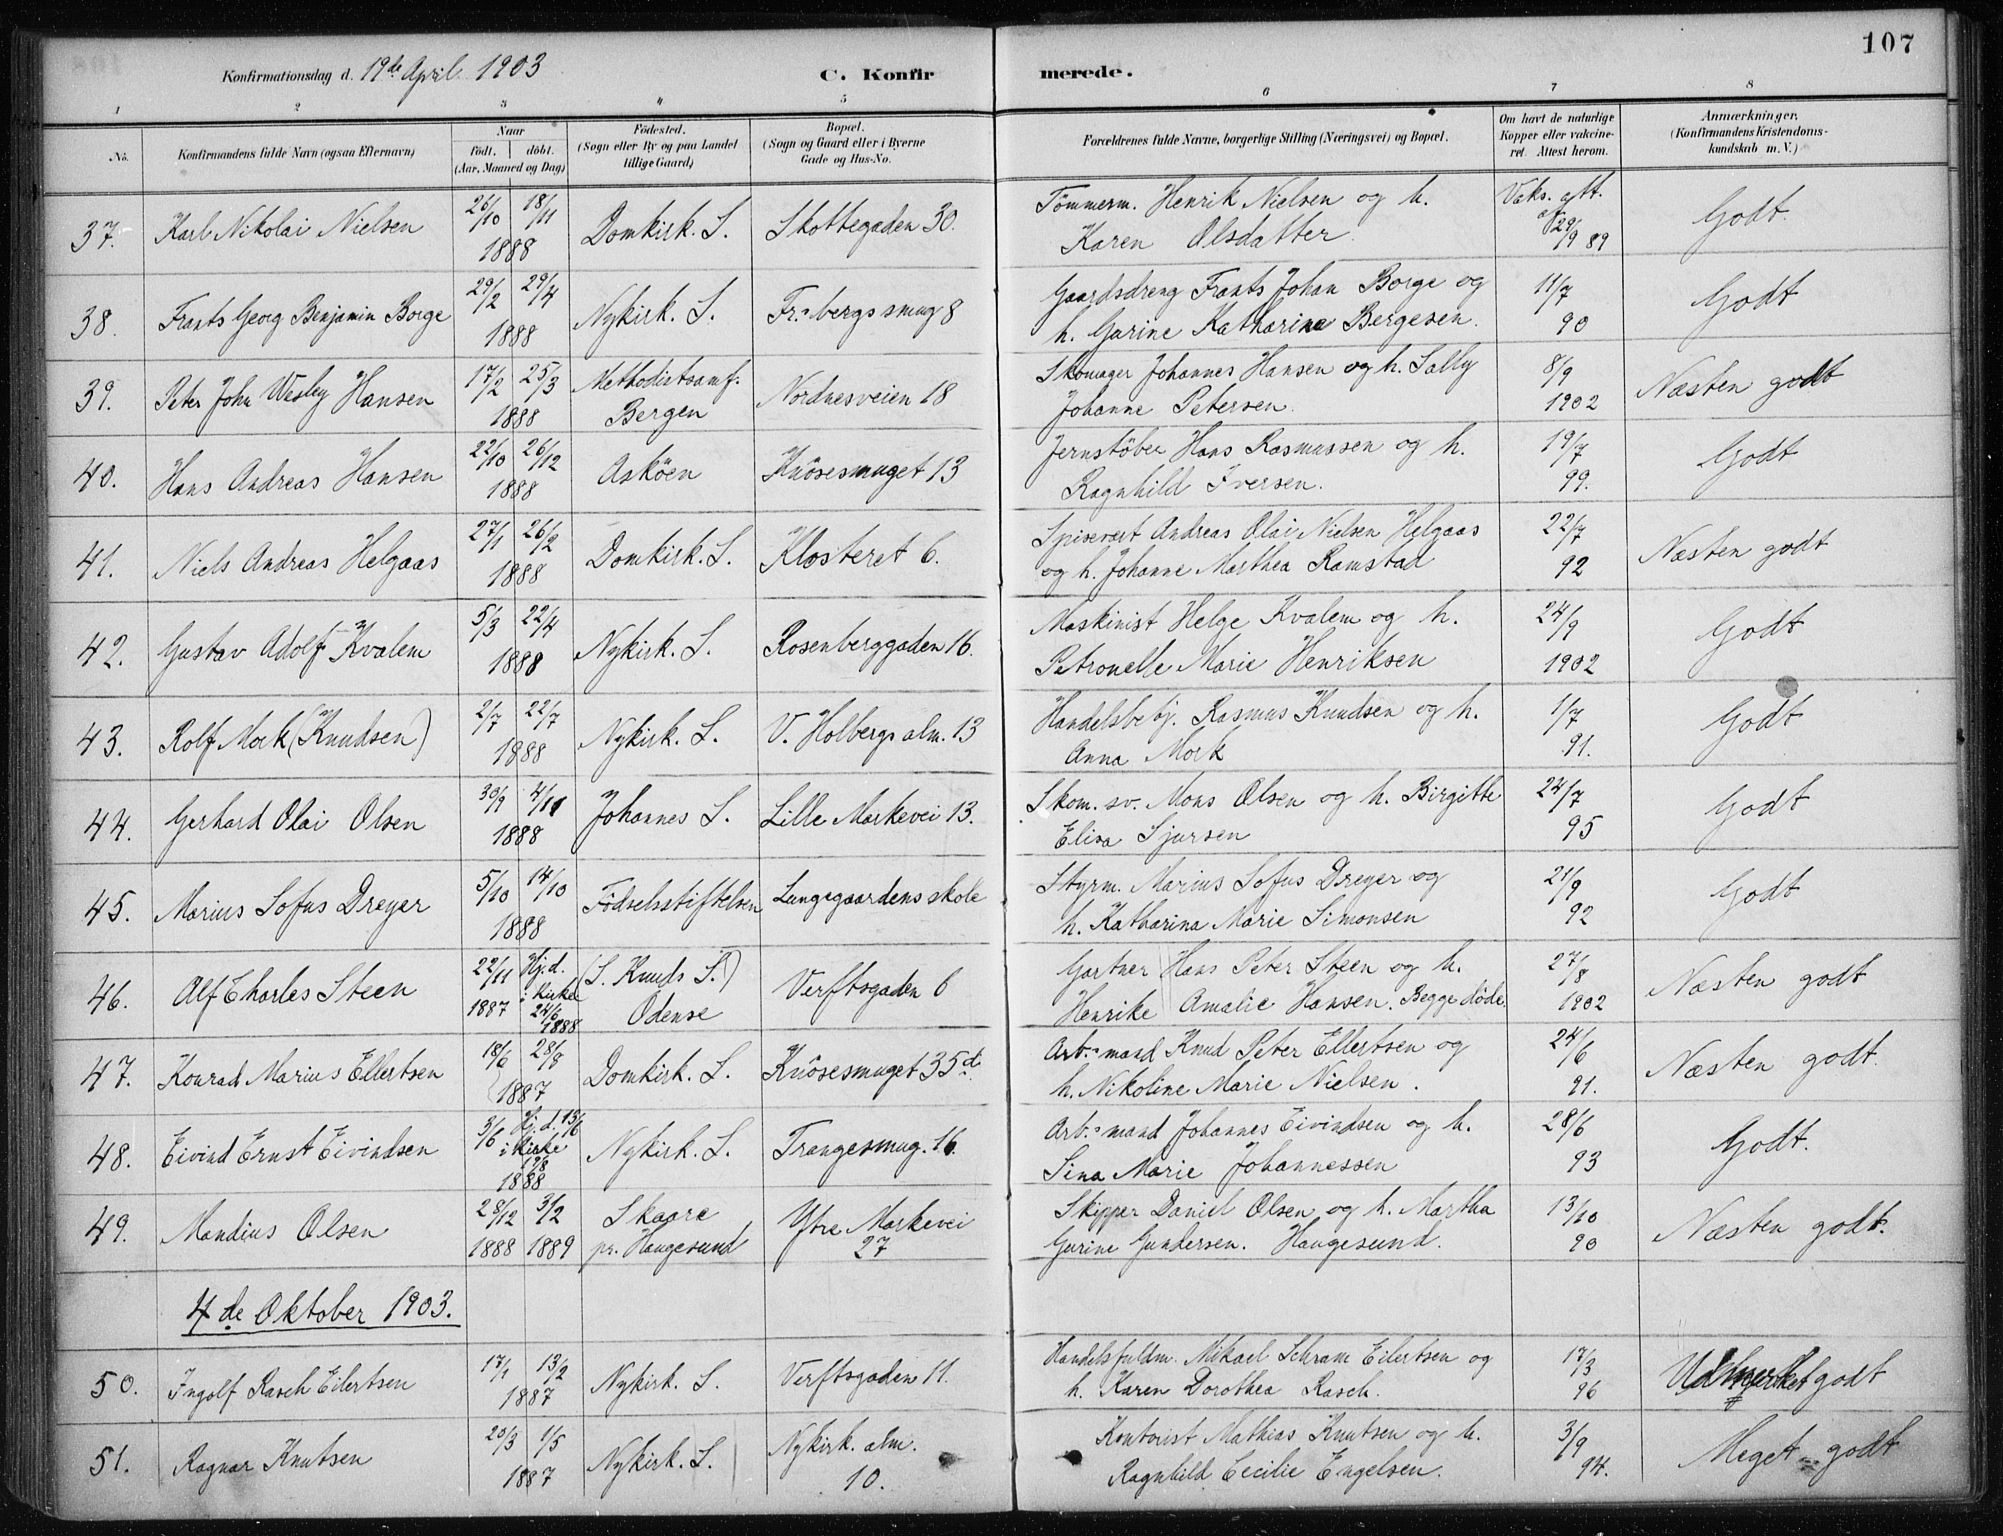 107
Konfirmationsdag d. 19de April 1903
C. Konfirmerede.
1 2 3 4 5 6 7 8
No. Konfirmandens fulde Navn (ogsaa Efternavn) Naar födt. döbt. (Aar, Maaned og Dag) Födested. (Sogn eller By og paa Landet tillige Gaard) Bopæl. (Sogn og Gaard eller i Byerne Gade og Hus-No. Forældrenes fulde Navne, borgerlige Stilling (Næringsvei) og Bopæl. Om havt de naturlige Kopper eller vakcineret. Attest herom. Anmærkninger, (Konfirmandens Kristendomskundskab m. V.)
37. Karl Nikolai Nielsen 26/10 18/11 1888 Domkirk. S. Skottegaden 30. Tömmerm. Henrik Nielsen og h. Karen Olsdatter. Vaks. att. af 29/9 89 Godt.
38. Frants Georg Benjamin Borge 29/2 29/4 1888 Nykirk. S. Fr.bergs smug 8 Gaardsdreng Frants Johan Borge og h. Gurine Katharine Bergesen. 11/7 90 Godt
39. Peter John Wesley Hansen 17/2 25/3 1888 Methodistsamf. Bergen Nordnesveien 18 Skomager Johannes Hansen og h. Sally Johanne Petersen. 8/9 1902 Næsten godt
40. Hans Andreas Hansen 22/10 26/12 1888 Asköen Knösesmuget 13 Jernstöber Hans Rasmussen og h. Ragnhild Iversen. 19/7 99. Godt
41. Niels Andreas Helgaas 27/1 26/2 1888 Domkirk. S. Klosteret 6. Spisevært Andreas Olai Nielsen Helgaas og h. Johanne Marthea Ramstad 22/7 92 Næsten godt
42. Gustav Adolf Kvalem 5/3 22/4 1888 Nykirk. S. Rosenberggaden 16. Maskinist Helge Kvalem og h. Petronelle Marie Henriksen 24/9 1902 Godt
43. Rolf Mork (Knudsen) 2/7 22/7 1888 Nykirk. S. V. Holbergs alm. 13 Handelsbetj. Rasmus Knudsen og h. Anna Mork 1/7 91. Godt
44. Gerhard Olai Olsen 30/9 4/11 1888 Johannes S. Lille Markevei 13. Skom. sv. Mons Olsen og h. Birgitte Elisa Sjursen 24/7 95 Godt
45. Marius Sofus Dreyer 5/10 14/10 1888 Födselsstiftelsen Lungegaardens skole Styrm. Marius Sofus Dreyer og h. Katharina Marie Simonsen 21/9 92 Godt
46. Alf Charles Steen 22/11 1887 Hj.d. i kirke 24/6 1888 (S. Knuds S.) Odense Verftsgaden 6 Gartner Hans Peter Steen og h. Henrike Amalie Hansen. Begge döde. 27/8 1902 Næsten godt
47. Konrad Marius Ellertsen 18/6 28/8 1887 Domkirk. S. Knösesmuget 35d. Arb.mand Knud Peter Ellertsen og h. Nikoline Marie Nielsen. 24/6 91. Næsten godt.
48. Eivind Ernst Eivindsen 3/6 Hj.d. 13/6 i Kirke 19/8 1888 Nykirk. S. Trangesmug. 16. Arb.mand Johannes Eivindsen og h. Sina Marie Johannessen 28/6 93 Godt.
49. Mandius Olsen 28/12 1888 3/2 1889 Skaare pr. Haugesund Ytre Markevei 27 Skipper Daniel Olsen og h. Martha Gurine Gundersen. Haugesund. 13/10 90 Næsten godt.
4de Oktober 1903.
50. Ingolf Rasch Eilertsen 17/1 13/2 1887 Nykirk. S. Verftsgaden 11. Handelsfuldm. Mikael Schram Eilertsen og h. Karen Dorothea Rasch. 17/3 96 Udmerket godt
51. Ragnar Knutsen 20/3 1/5 1887 Nykirk. S. Nykirk. alm. 10. Kontorist Mathias Knutsen og h. Ragnhild Cecilie Engelsen. 3/9 94. Meget godt